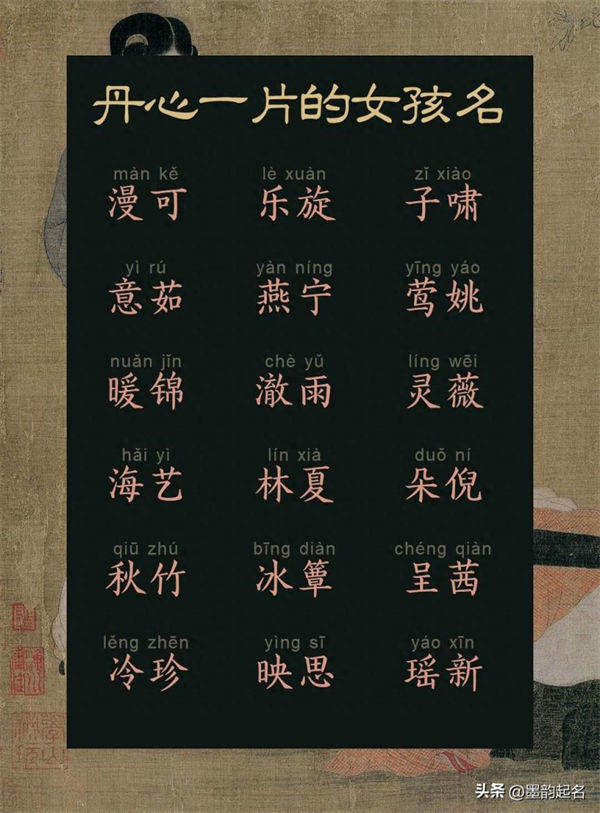 丹心一片的女孩名
màn kě lè xuàn zǐ xiào
漫可 乐旋 子啸
yì rú yàn níng yīng yáo
意茹 燕宁 莺姚
nuǎn jǐn chè yǔ líng wēi
暖锦 澈雨 灵薇
hǎi yì lín xià duǒ ní
海艺 林夏 朵倪
qiū zhú bīng diàn chéng qiàn
秋竹 冰簟 呈茜
lěng zhēn yìng sī yáo xīn
冷珍 映思 瑶新
头条 @墨韵起名